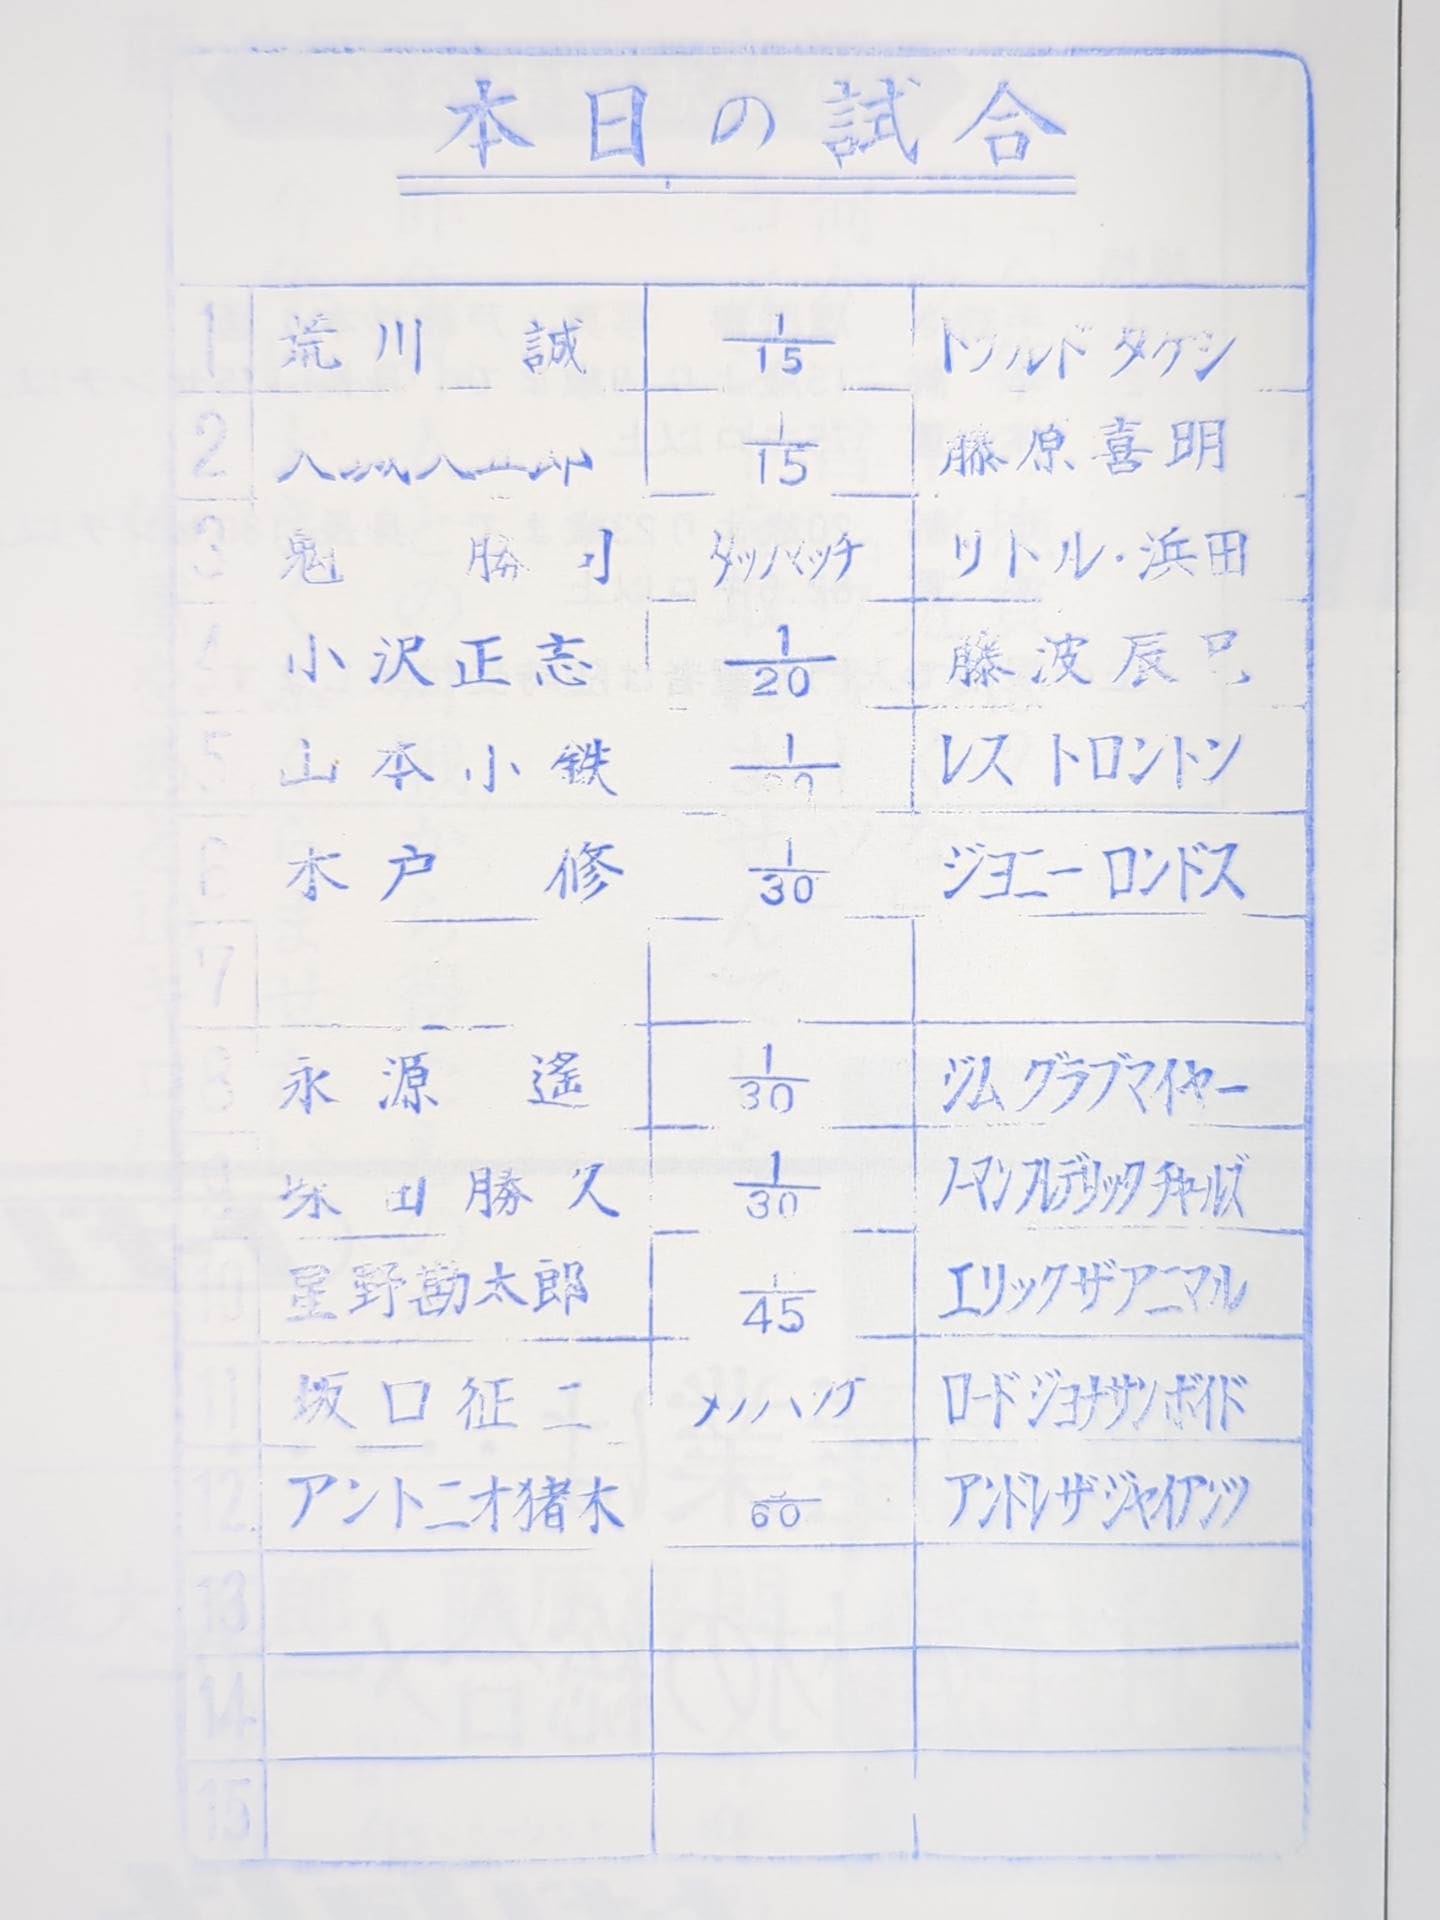 本日の試合
1 荒川 誠 1/15 ドナルド タケシ
2 大城大五郎 1/15 藤原喜明
3 魁 勝司 タッグマッチ リトル・浜田
4 小沢正志 1/20 藤波辰巳
5 山本小鉄 1/20 レス トロントン
6 木戸 修 1/30 ジョニー ロンドス
7
8 永源 遙 1/30 ジム グラブマイヤー
9 柴田勝久 1/30 ノーマン フレデリック チャールズ
10 星野勘太郎 1/45 エリック ザ アニマル
11 坂口征二 ロード ジョナサン ボイド
12 アントニオ猪木 60 アンドレ ザ ジャイアンツ
13
14
15